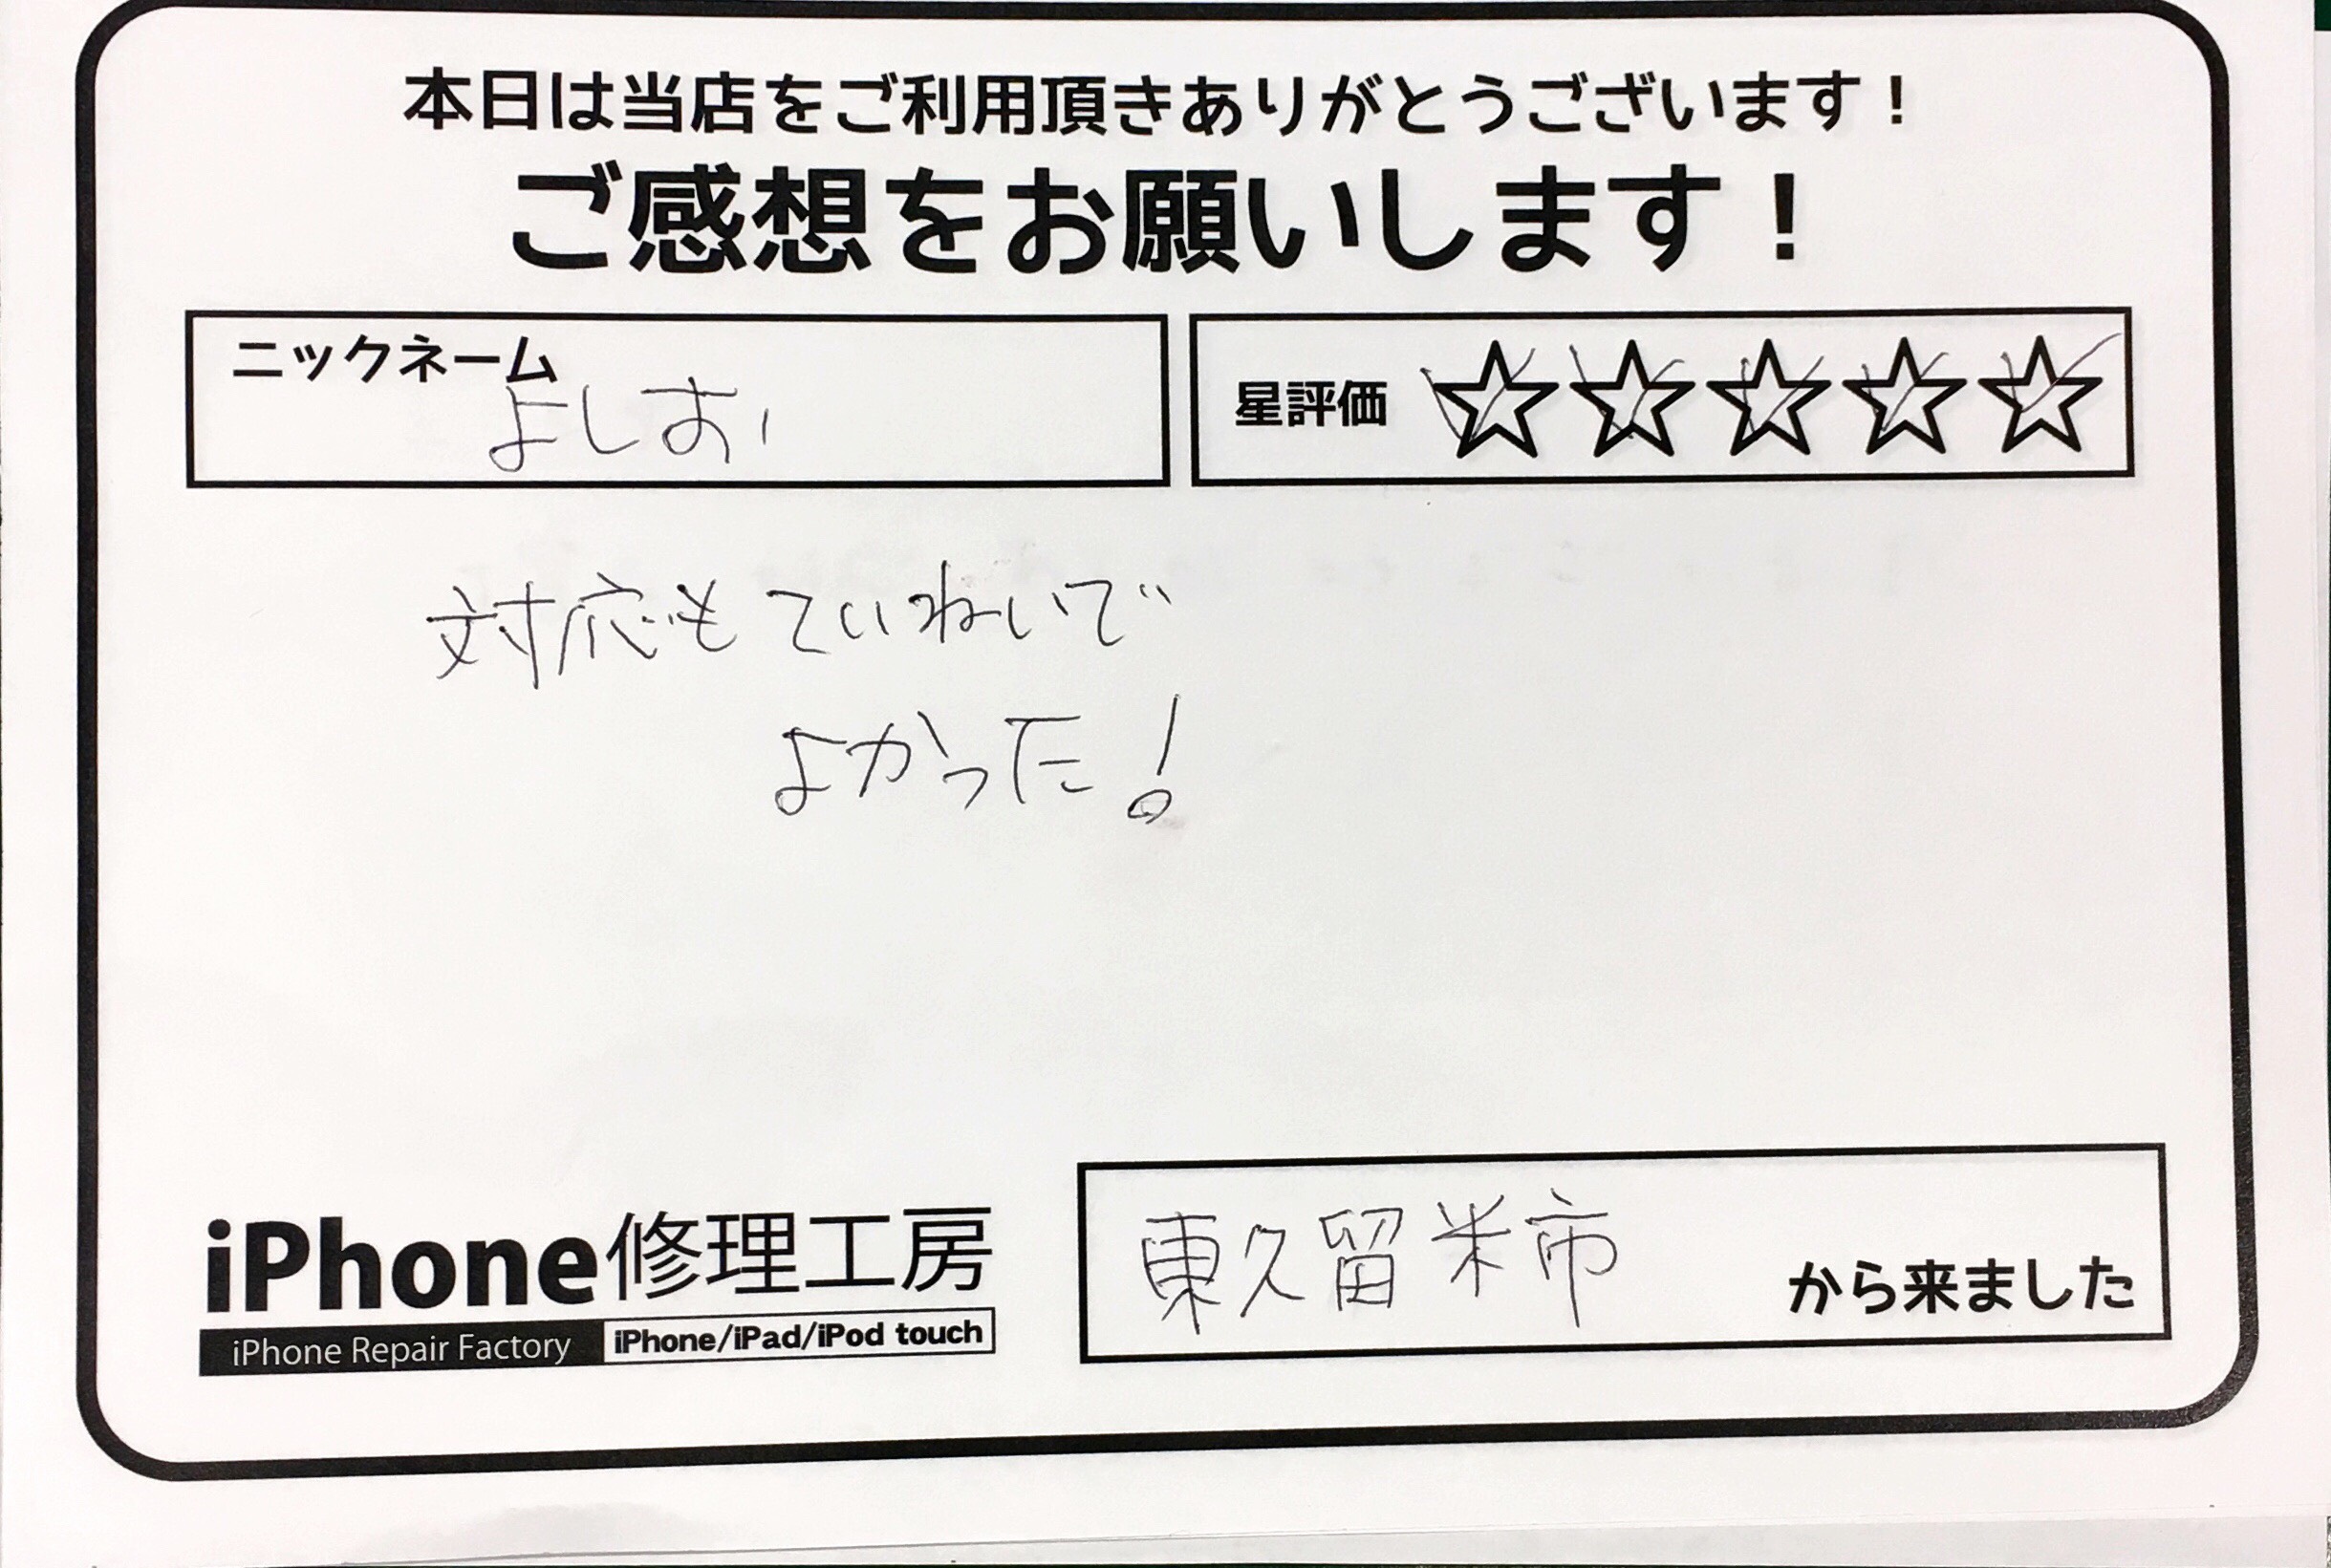 本日は当店をご利用頂きありがとうございます！
ご感想をお願いします！
ニックネーム
よしおい
星評価 ☆☆☆☆☆
対応もていねいで
よかった！
iPhone修理工房
iPhone Repair Factory iPhone/iPad/iPod touch
東久留米市 から来ました